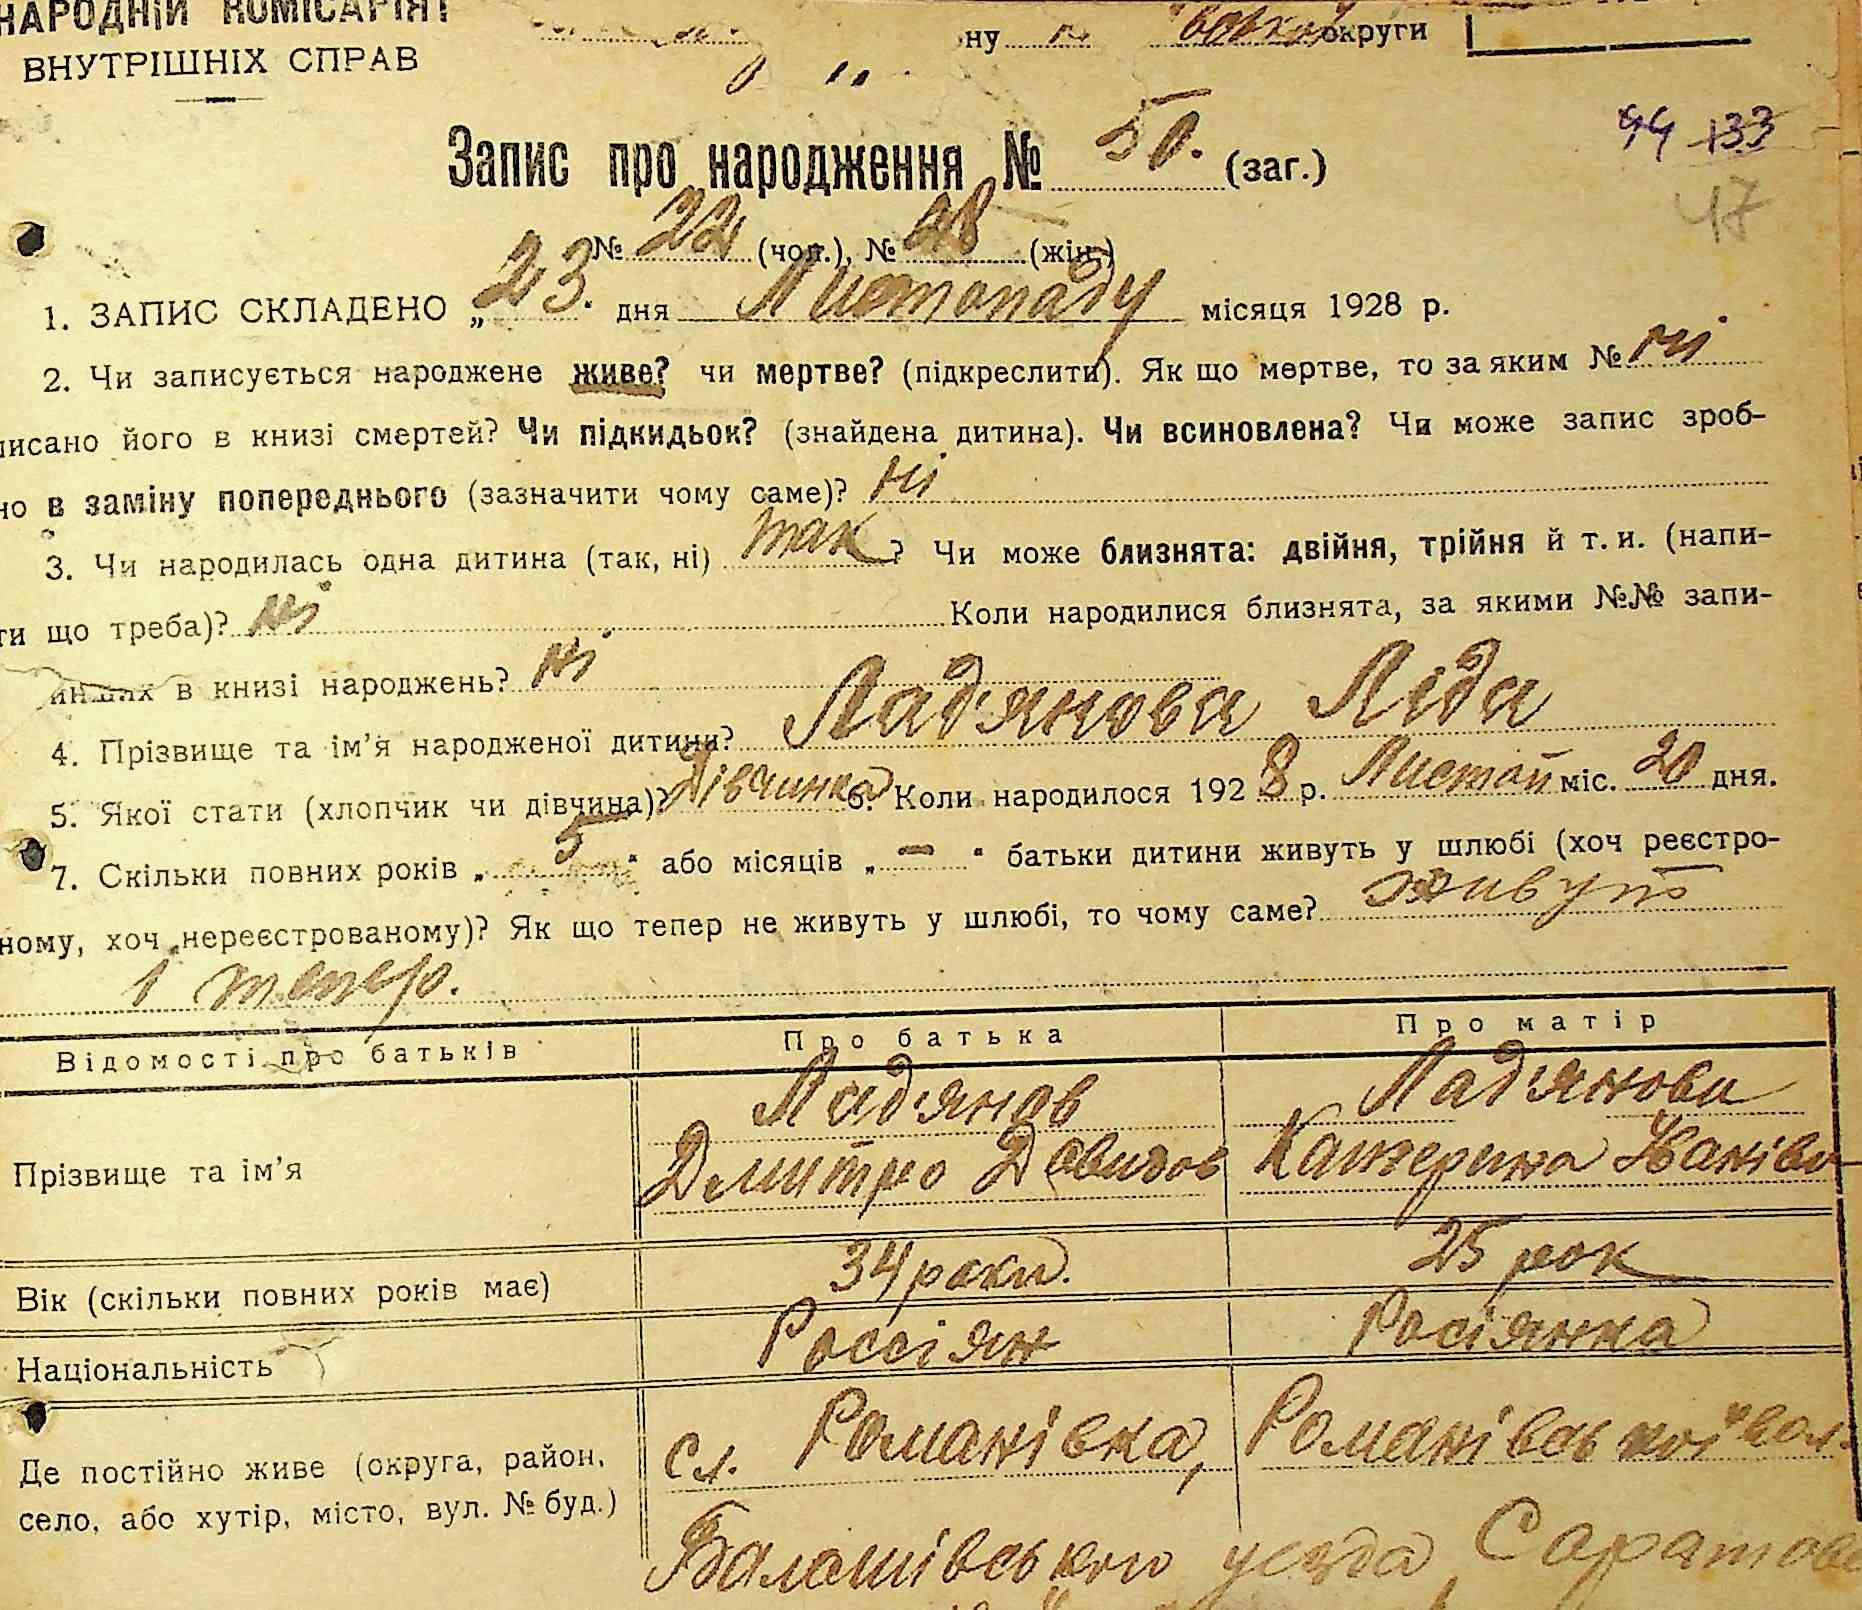 НАРОДНІЙ КОМІСАРІЯТ
ВНУТРІШНІХ СПРАВ
ну округи
94 133
47
Запис про народження № 50. (заг.)
№ 22 (чол.), № 28 (жін.)
1. ЗАПИС СКЛАДЕНО „23" дня Листопаду місяця 1928 р.
2. Чи записується народжене живе? чи мертве? (підкреслити). Як що мертве, то за яким № ні
писано його в книзі смертей? Чи підкидьок? (знайдена дитина). Чи всиновлена? Чи може запис зроб-
но в заміну попереднього (зазначити чому саме)? ні
3. Чи народилась одна дитина (так, ні) так? Чи може близнята: двійня, трійня й т. и. (напи-
ти що треба)? ні Коли народилися близнята, за якими №№ запи-
инших в книзі народжень? ні
4. Прізвище та ім'я народженої дитини? Лад'янова Ліда
5. Якої стати (хлопчик чи дівчина)? Дівчинка 6. Коли народилося 1928 р. Листоп міс. 20 дня.
7. Скільки повних років „5" або місяців „—" батьки дитини живуть у шлюбі (хоч реєстро-
ному, хоч нереєстрованому)? Як що тепер не живуть у шлюбі, то чому саме? живуть
і тепер.
Відомості про батьків Про батька Про матір
Лад'янов Лад'янова
Прізвище та ім'я Дмитро Давидов Катерина Яківл
Вік (скільки повних років має) 34 роки. 25 рок
Національність Россіян Росіянка
Де постійно живе (округа, район, сл. Романівка, Романівської вол.
село, або хутір, місто, вул. № буд.) Балашівського уєзда Саратовс